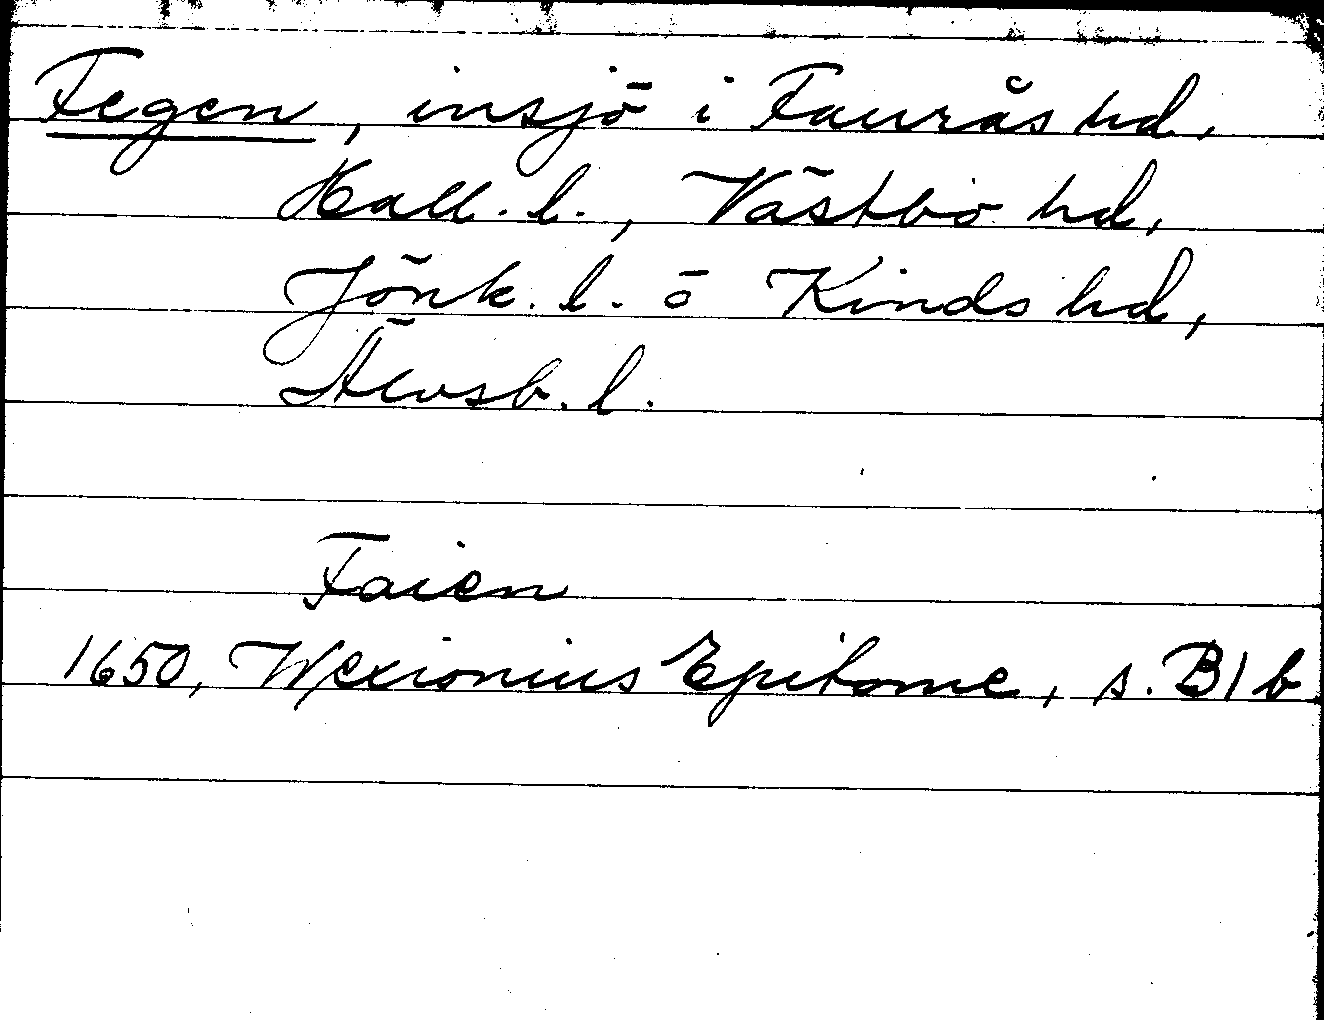 Fegen, insjö i Faurås hd,
Hall. l., Västbo hd,
Jönk. l. ō Kinds hd,
Älvsb. l.
Faien
1650, Wexionius Epitome, s. B1b